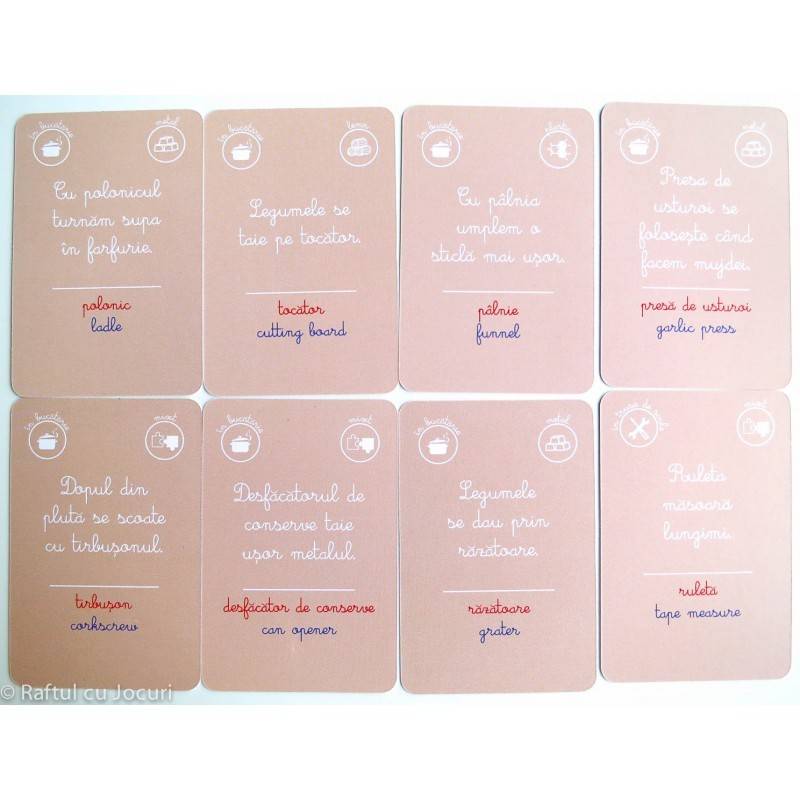 în bucătărie
metal
Cu polonicul
turnăm supa
în farfurie.
polonic
ladle
în bucătărie
lemn
Legumele se
taie pe tocător.
tocător
cutting board
în bucătărie
plastic
Cu pâlnia
umplem o
sticlă mai ușor.
pâlnie
funnel
în bucătărie
metal
Presa de
usturoi se
folosește când
facem mujdei.
presă de usturoi
garlic press
în bucătărie
mixt
Dopul din
plută se scoate
cu tirbușonul.
tirbușon
corkscrew
în bucătărie
mixt
Desfăcătorul de
conserve taie
ușor metalul.
desfăcător de conserve
can opener
în bucătărie
metal
Legumele
se dau prin
răzătoare.
răzătoare
grater
mixt
Ruleta
măsoară
lungimi.
ruletă
tape measure
© Raftul cu Jocuri